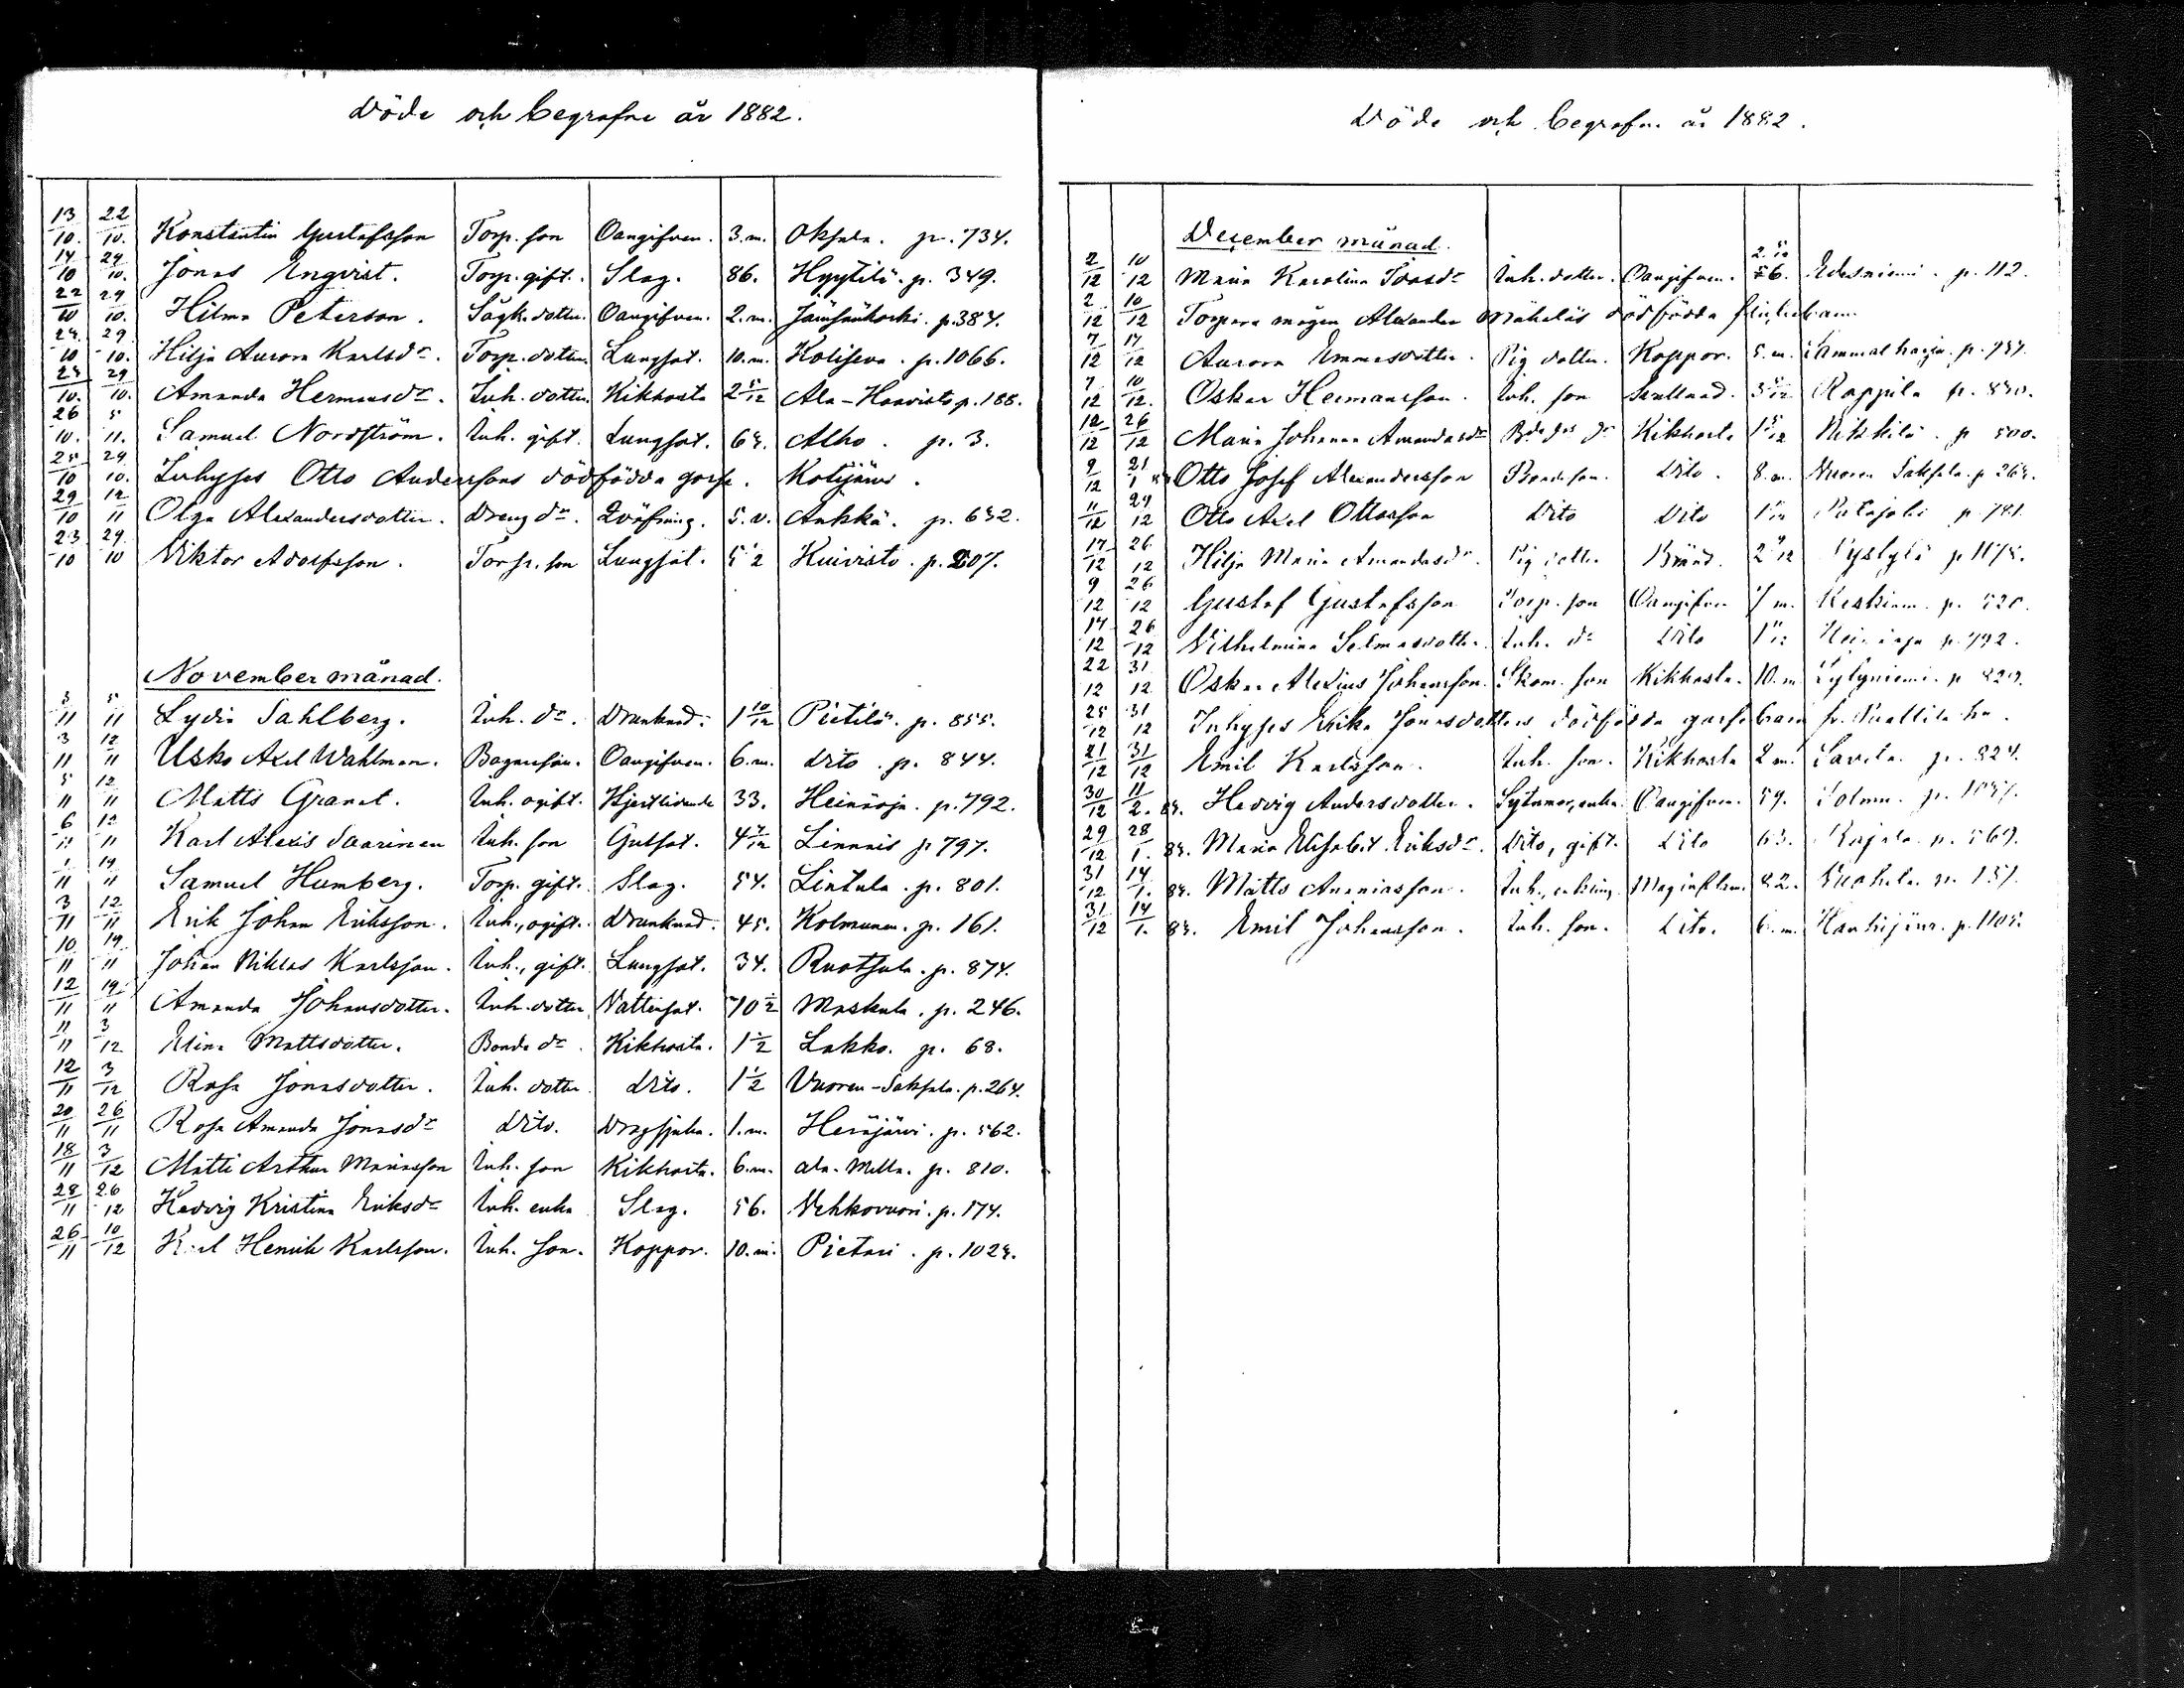 Döde och begrafne år 1882.
13/10. 22/10. Konstantin Gustafsson Torp. son Oangifven. 3. m. Oksala. p. 734.
14/10 29/10. Jonas Engvist. Torp. gift. Slag. 86. Hyytilä. p. 349.
22/10 29/10. Hilma Peterson. Sågk. dotter. Oangifven. 2. m. Jämsänkoski. p. 384.
29/10. Hilja Aurora Karlsdr. Torp. dotter. Lungsot. 10. m. Koliseva. p. 1066.
29/10. Amanda Hermansdr. Inh. dotter. Kikhosta 2 5/12 Ala-Haavisto p. 188.
26/10. 5/11. Samuel Nordström. Inh. gift. Lungsot. Alho. p. 3.
29/10. Inhyses Otto Anderssons dödfödda gosse. Kotijärvi.
29/10 12/11 Olga Alexandersdotter. Dreng dr. Qväfning. 5. v. Ankkä. p. 632.
23/10 29/10 Viktor Adolfsson. Torp. son Lungsot. 5 1/2 Kuivisto. p. 207.
November månad.
3/11 5/11 Lydia Sahlberg. Inh. dr. Drunknad. 1 10/12 Pietilä. p. 855.
3/11 12/11 Usko Axel Wahlman. Bagareson. Oangifven. 6. m. Dito. p. 844.
5/11 12/11 Matts Granat. Inh. ogift. Hjertlidande 33. Heinäoja. p. 792.
6/11 12/11 Karl Alexis Saarinen Inh. son Gulsot. 4 7/12 Linnais p 797.
1/11 19/11 Samuel Humberg. Torp. gift. Slag. 54. Lintula. p. 801.
3/11 12/11 Erik Johan Eriksson. Inh., ogift. Drunknad. 45. Kolmunen. p. 161.
10/11 19/11 Johan Niklas Karlsson. Inh., gift. Lungsot. 34. Ruotsula. p. 874.
12/11 19/11 Amanda Johansdotter. Inh. dotter Vattusot. 10 1/2 Maskala. p. 246.
11/11 3/12 Elina Mattsdotter. Bonde dr. Kikhosta. 1 1/2 Lakko. p. 68.
12/11 3/12 Rosa Jonasdotter. Inh. dotter Dito. 1 1/2 Vuoren-Saksala. p. 264.
20/11 26/11 Rosa Amanda Jonasdr Dito. Dragsjuka. 1. m. Heräjärvi. p. 562.
18/11 3/12 Matti Arthur Mariasson Inh. son Kikhosta. 6. m. Ala-Mella. p. 810.
28/11 26/12 Hedvig Kristina Eriksdr Inh. enka Slag. 56. Vehkovuori. p. 174.
26/11 10/12 Karl Henrik Karlsson. Inh. son. Koppor. 10. m. Pietari. p.
Döde och begrafne år 1882.
December månad.
2/12 10/12 Maria Karolina Inh. dotter. Oangifven. 2. 5/12 Edesniemi. p. 112.
2/12 10/12 Torpare mågen Alexander Mäkeläs dödfödda flickebarn.
7/12 17/12 Aurora Emmasdotter. Pig dotter. Koppor. 5. m. p.
7/12 10/12. Oskar Hermansson. Inh. son Rappila p.
12/12 26/12 Maria Johanna Amandasdr Kikhosta 1 5/12 Nikkilä. p 500.
9/12 21/1 Otto Josef Alexandersson Bondeson. Dito. 8. m. Vuoren Saksala. p
11/12 29/12 Otto Axel Ottosson Dito Dito p 781.
17/12 26/12 Hilja Maria Amandasdr. Pig dotter Bränd. p 1178.
9/12 26/12 Gustaf Gustafsson Torp. son Oangifven 7 m. Keskiniem. p.
17/12 26/12 Vilhelmina Selmasdotter. Inh. dr Dito Heinäoja p. 792.
22/12 31/12 Oskar Alexius Johansson. Skom. son Kikhosta. 10. m. Lylyniemi. p 829.
25/12 31/12 Inhyses Erika Jonasdotters dödfödda gossebarn fr.
21/12 31/12 Emil Karlsson. Inh. son. Kikhosta 2 m. Savela. p. 824.
30/12 11/2. 83. Hedvig Andersdotter. Sytnmor, enka. Oangifven. 59. p.
29/12 28/1. 83. Maria Elisabet Eriksdr. Dito, gift. Dito 63. Rajala. p. 569.
31/12 14/1. 83. Matts Ananiasson. Inh., enkling. Maginflam. 82. p. 157.
31/12 14/1. 83. Emil Johansson. Inh. son. Dito. 6. m. p. 1105.